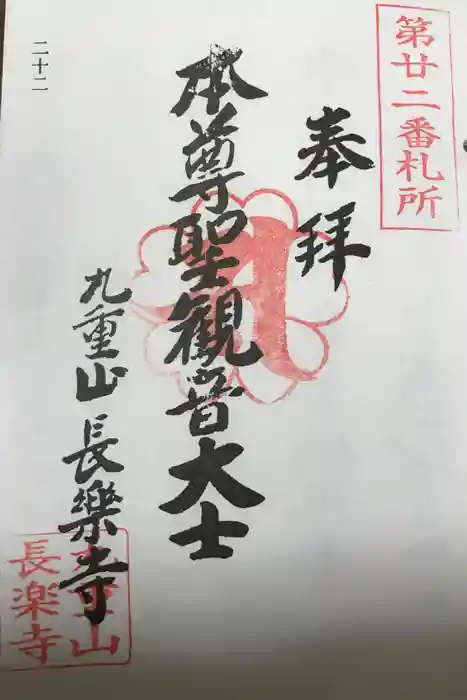 第廿二番札所
奉拝
本尊聖観音大士
九重山長樂寺
九重山
長楽寺
二十二